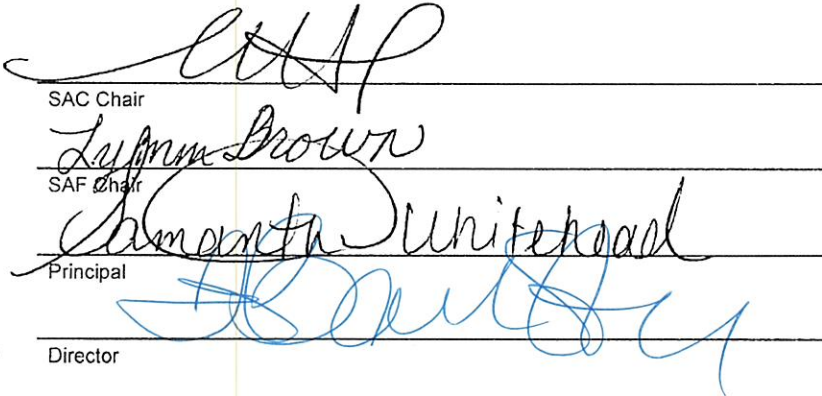 SAC Chair
Lynnm Brown
SAF Chair
Samantha Whitehead
Principal
Director